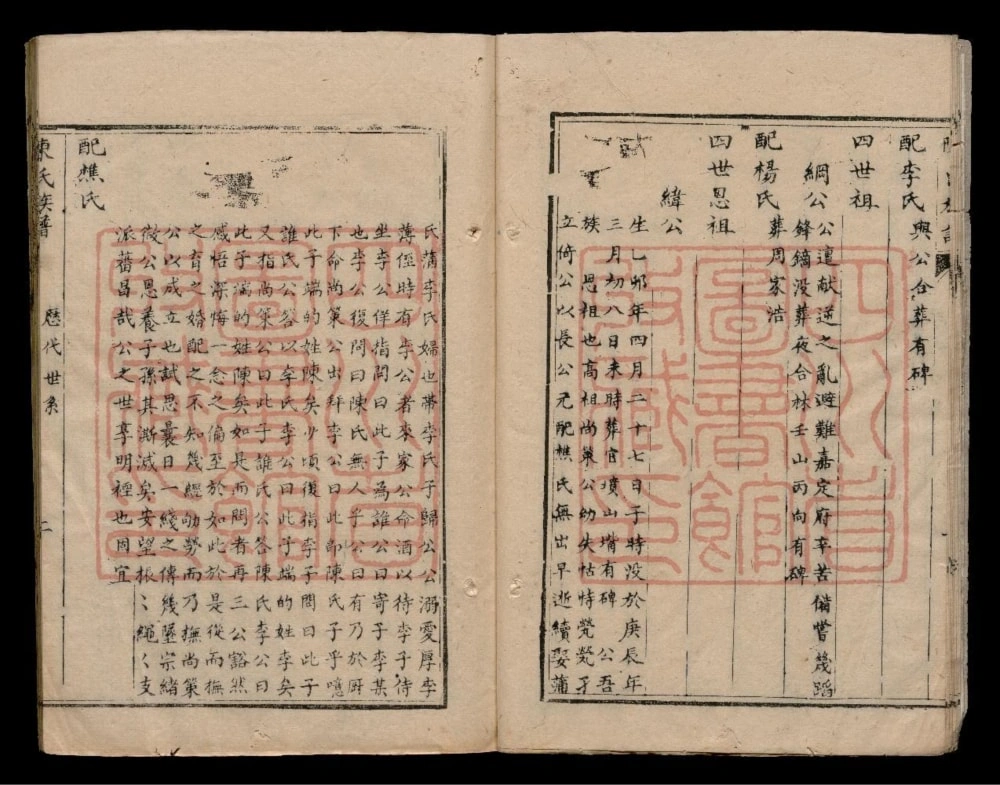 配李氏 與公合葬有碑
四世祖
綱公 公遭献逆之亂避難嘉定府辛苦備嘗幾蹈
鋒鏑没葬夜合林壬山丙向有碑
配楊氏 葬周家浩
四世恩祖
緯公
生乙邜年四月二十七日子時没於庚辰年
三月初八日未時葬官墳山嘴有碑 公吾
族 恩祖也高祖尚策公幼失怙恃煢煢孑
立倚公以長公元配樵氏無出早逝續娶蒲
氏蒲李氏婦也帶李氏子歸公公溺愛厚李
薄侄時有李公者來家公命酒以待李子待
坐李公佯指問曰此子為誰公曰寄子李某
也李公復問曰陳氏無人乎公曰有乃於厨
下命尚策公出拜李公曰此即陳氏子乎噫
此子端的姓陳矣少頃復指李子問曰此子
誰氏公答以李氏李公曰此子端的姓李矣
又指尚策公曰此子誰氏公答陳氏李公曰
此子端的姓陳矣如是而問者再三公豁然
感悟深悔一念之偏至於如此於是從而撫
之育之婚配之不知幾經劬勞而乃撫尚策
公以成立也試思曩日一綫之傳幾墜宗緒
微公恩養子孫其澌滅矣安望振〻繩〻支
派蕃昌哉公之世享明禋也固宜
配樵氏
陳氏族譜 歷代世系 二
四川省
圖書館